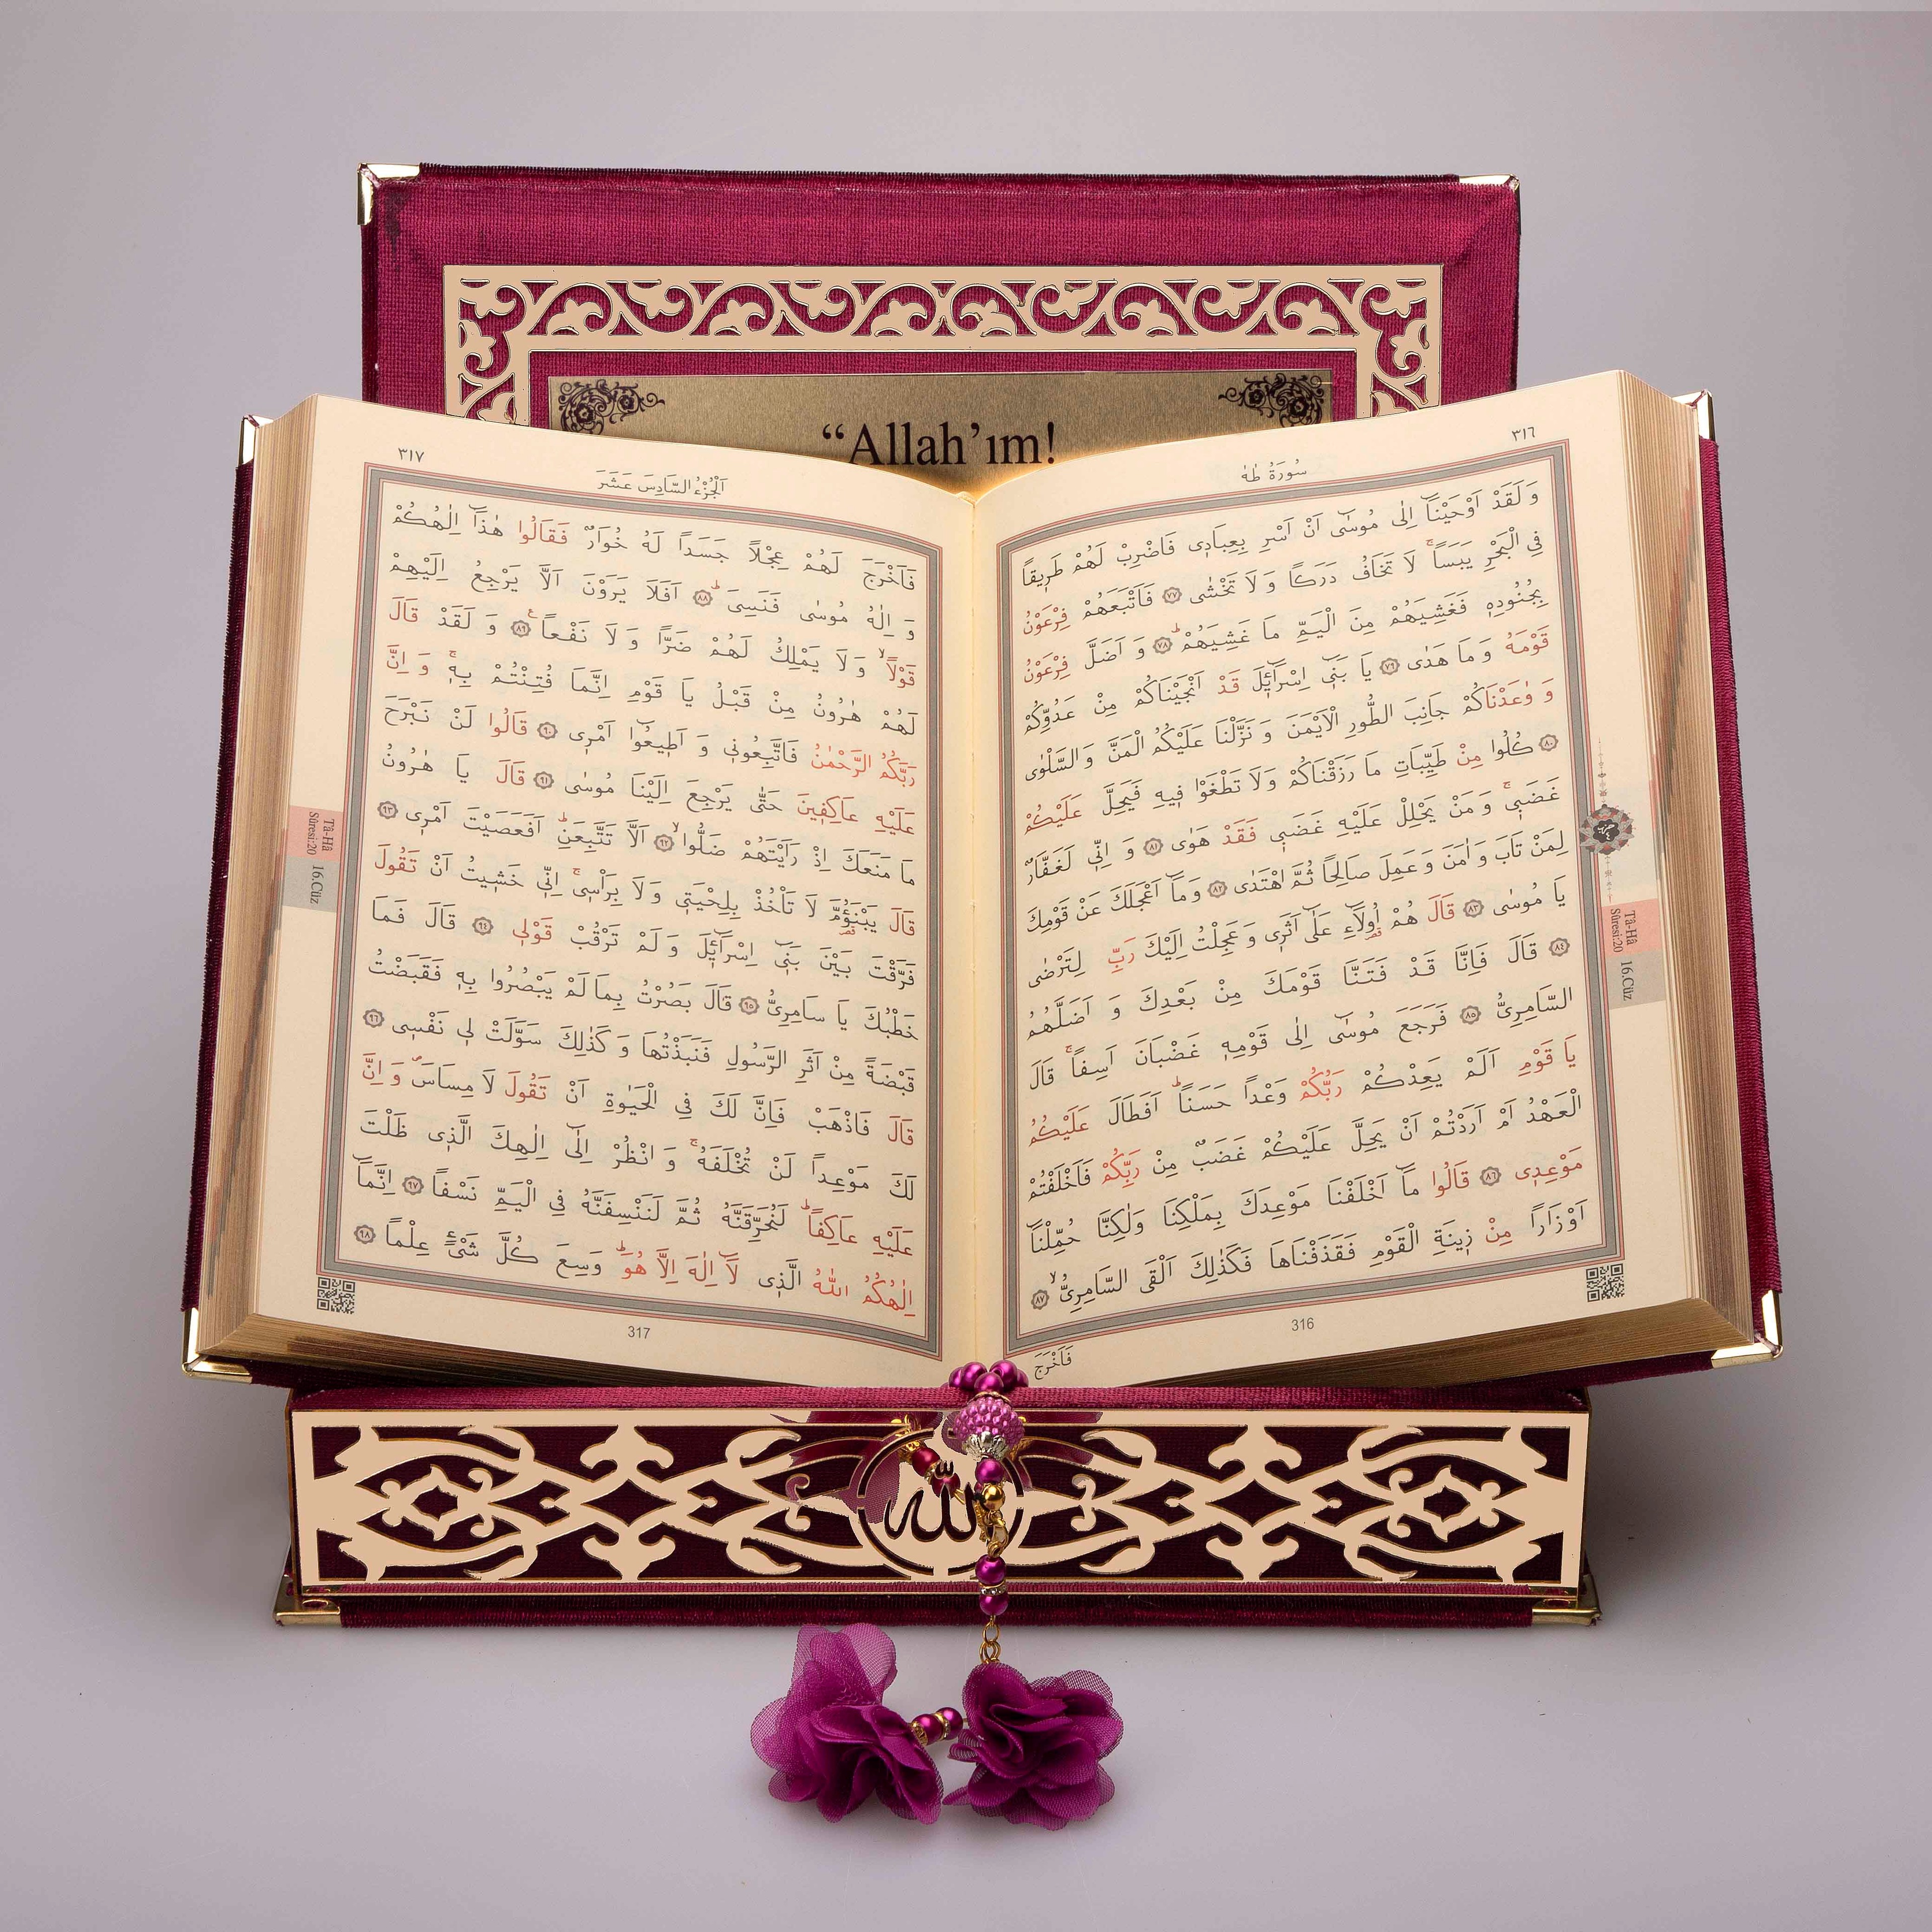 “Allah’ım!
٣١٦
سُورَةُ طٰهٰ
وَ لَقَدْ اَوْحَيْنَٓا اِلٰى مُوسٰٓى اَنْ اَسْرِ بِعِبَادٖى فَاضْرِبْ لَهُمْ طَرٖيقاً
فِي الْبَحْرِ يَبَساًۚ لَا تَخَافُ دَرَكاً وَ لَا تَخْشٰى ﴿٧٧﴾ فَاَتْبَعَهُمْ فِرْعَوْنُ
بِجُنُودِهٖ فَغَشِيَهُمْ مِنَ الْيَمِّ مَا غَشِيَهُمْؕ ﴿٧٨﴾ وَ اَضَلَّ فِرْعَوْنُ
قَوْمَهُ وَ مَا هَدٰى ﴿٧٩﴾ يَا بَنٖٓى اِسْرَٓائٖلَ قَدْ اَنْجَيْنَاكُمْ مِنْ عَدُوِّكُمْ
وَ وٰعَدْنَاكُمْ جَانِبَ الطُّورِ الْاَيْمَنَ وَ نَزَّلْنَا عَلَيْكُمُ الْمَنَّ وَ السَّلْوٰى
﴿٨٠﴾ كُلُوا مِنْ طَيِّبَاتِ مَا رَزَقْنَاكُمْ وَ لَا تَطْغَوْا فٖيهِ فَيَحِلَّ عَلَيْكُمْ
غَضَبٖىۚ وَ مَنْ يَحْلِلْ عَلَيْهِ غَضَبٖى فَقَدْ هَوٰى ﴿٨١﴾ وَ اِنّٖى لَغَفَّارٌ
لِمَنْ تَابَ وَ اٰمَنَ وَ عَمِلَ صَالِحًا ثُمَّ اهْتَدٰى ﴿٨٢﴾ وَ مَٓا اَعْجَلَكَ عَنْ قَوْمِكَ
يَا مُوسٰى ﴿٨٣﴾ قَالَ هُمْ اُو۬لَٓاءِ عَلٰٓى اَثَرٖى وَ عَجِلْتُ اِلَيْكَ رَبِّ لِتَرْضٰى
﴿٨٤﴾ قَالَ فَاِنَّا قَدْ فَتَنَّا قَوْمَكَ مِنْ بَعْدِكَ وَ اَضَلَّهُمُ
السَّامِرِىُّ ﴿٨٥﴾ فَرَجَعَ مُوسٰٓى اِلٰى قَوْمِهٖ غَضْبَانَ اَسِفاًۚ قَالَ
يَا قَوْمِ اَلَمْ يَعِدْكُمْ رَبُّكُمْ وَعْداً حَسَناًؕ اَفَطَالَ عَلَيْكُمُ
الْعَهْدُ اَمْ اَرَدْتُمْ اَنْ يَحِلَّ عَلَيْكُمْ غَضَبٌ مِنْ رَبِّكُمْ فَاَخْلَفْتُمْ
مَوْعِدٖى ﴿٨٦﴾ قَالُوا مَٓا اَخْلَفْنَا مَوْعِدَكَ بِمَلْكِنَا وَلٰكِنَّا حُمِّلْنَٓا
اَوْزَارًا مِنْ زٖينَةِ الْقَوْمِ فَقَذَفْنَاهَا فَكَذٰلِكَ اَلْقَى السَّامِرِىُّۙ ﴿٨٧﴾
316
فَاَخْرَجَ
حزب
٤
Tâ-Hâ
Sûresi:20
16.Cüz
٣١٧
اَلْجُزْءُ السَّادِسَ عَشَرَ
فَاَخْرَجَ لَهُمْ عِجْلاً جَسَداً لَهُ خُوَارٌ فَقَالُوا هٰذَٓا اِلٰهُكُمْ
وَ اِلٰهُ مُوسٰى فَنَسِىَؕ ﴿٨٨﴾ اَفَلَا يَرَوْنَ اَلَّا يَرْجِعُ اِلَيْهِمْ
قَوْلاًۙ وَ لَا يَمْلِكُ لَهُمْ ضَرًّا وَ لَا نَفْعاًࣖ ﴿٨٩﴾ وَ لَقَدْ قَالَ
لَهُمْ هٰرُونُ مِنْ قَبْلُ يَا قَوْمِ اِنَّمَا فُتِنْتُمْ بِهٖۚ وَ اِنَّ
رَبَّكُمُ الرَّحْمٰنُ فَاتَّبِعُونٖى وَ اَطٖيعُٓوا اَمْرٖى ﴿٩٠﴾ قَالُوا لَنْ نَبْرَحَ
عَلَيْهِ عَاكِفٖينَ حَتّٰى يَرْجِعَ اِلَيْنَا مُوسٰى ﴿٩١﴾ قَالَ يَا هٰرُونُ
مَا مَنَعَكَ اِذْ رَاَيْتَهُمْ ضَلُّٓواۙ ﴿٩٢﴾ اَلَّا تَتَّبِعَنِؕ اَفَعَصَيْتَ اَمْرٖى ﴿٩٣﴾
قَالَ يَبْنَؤُ۬مَّ لَا تَأْخُذْ بِلِحْيَتٖى وَ لَا بِرَاْسٖىۚ اِنّٖى خَشٖيتُ اَنْ تَقُولَ
فَرَّقْتَ بَيْنَ بَنٖٓى اِسْرَٓائٖلَ وَ لَمْ تَرْقُبْ قَوْلٖى ﴿٩٤﴾ قَالَ فَمَا
خَطْبُكَ يَا سَامِرِىُّ ﴿٩٥﴾ قَالَ بَصُرْتُ بِمَا لَمْ يَبْصُرُوا بِهٖ فَقَبَضْتُ
قَبْضَةً مِنْ اَثَرِ الرَّسُولِ فَنَبَذْتُهَا وَ كَذٰلِكَ سَوَّلَتْ لٖى نَفْسٖى ﴿٩٦﴾
قَالَ فَاذْهَبْ فَاِنَّ لَكَ فِي الْحَيٰوةِ اَنْ تَقُولَ لَا مِسَاسَࣕ وَ اِنَّ
لَكَ مَوْعِداً لَنْ تُخْلَفَهُۚ وَ انْظُرْ اِلٰٓى اِلٰهِكَ الَّذٖى ظَلْتَ
عَلَيْهِ عَاكِفاًؕ لَنُحَرِّقَنَّهُ ثُمَّ لَنَنْسِفَنَّهُ فِي الْيَمِّ نَسْفاً ﴿٩٧﴾ اِنَّمَٓا
اِلٰهُكُمُ اللّٰهُ الَّذٖى لَٓا اِلٰهَ اِلَّا هُوَؕ وَسِعَ كُلَّ شَىْءٍ عِلْماً ﴿٩٨﴾
317
Tâ-Hâ
Sûresi:20
16.Cüz
الله